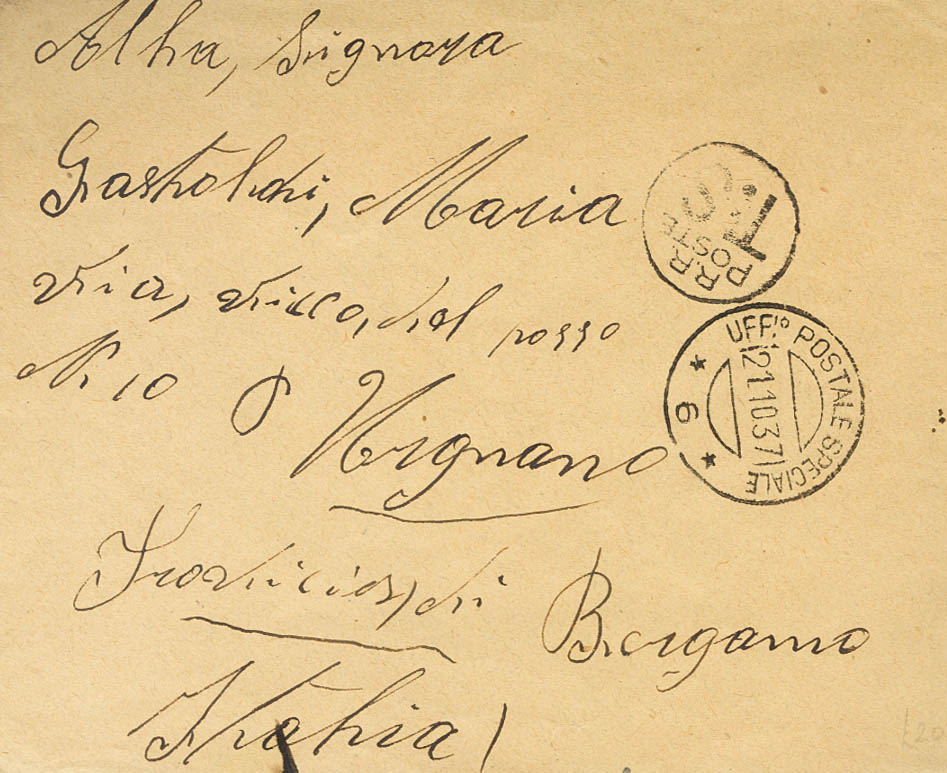 Alha, Signora
Gastholdi, Maria
Via, Vicco, del pozzo
N. 10
Urgnano
Provincia, di Bergamo
Itahia
R.R. POSTE T.S.
UFF.º POSTALE SPECIALE
21.10.37
* 6 *